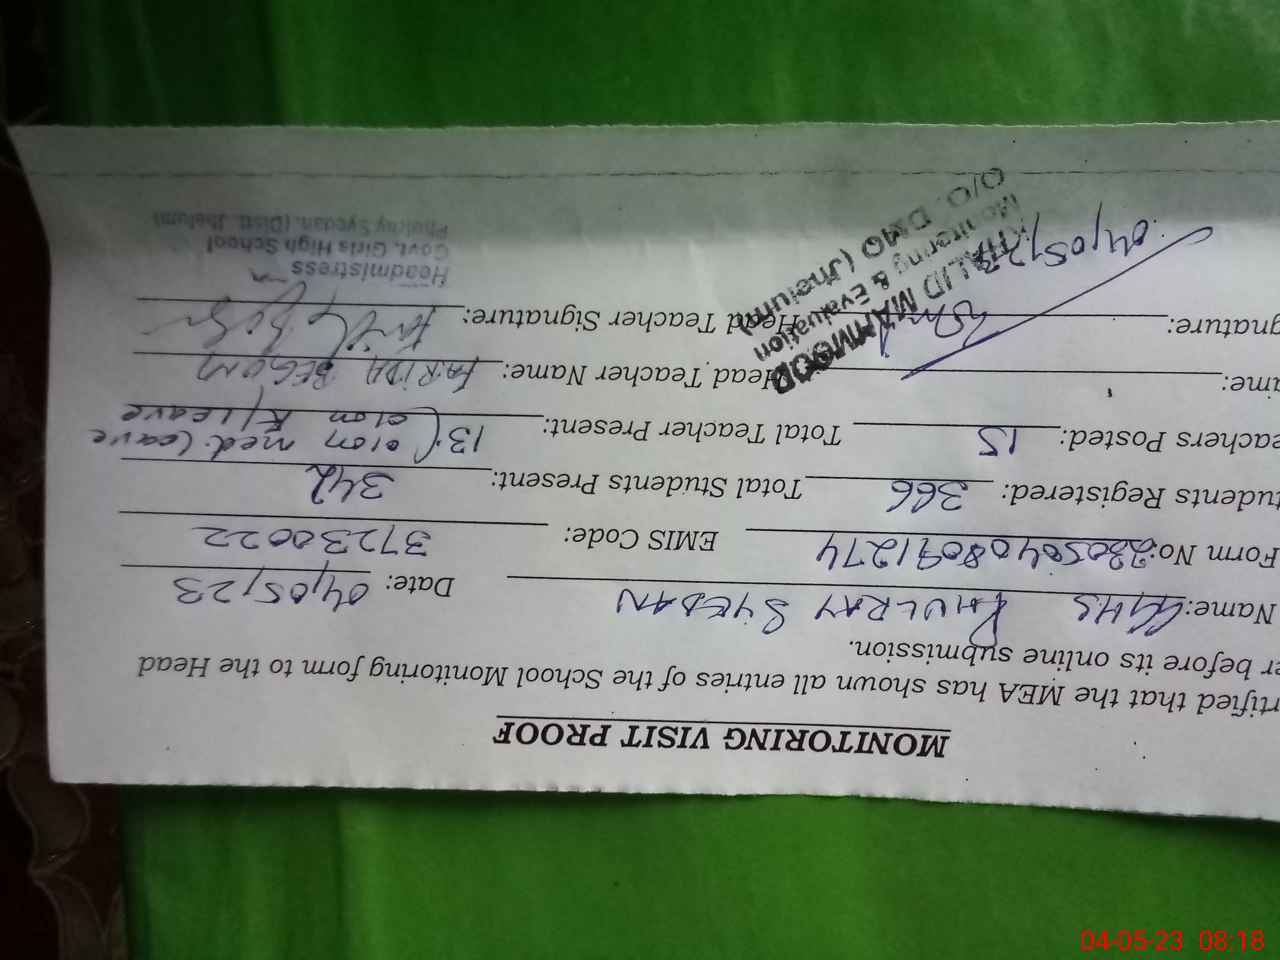 MONITORING VISIT PROOF
rtified that the MEA has shown all entries of the School Monitoring form to the Head
er before its online submission.
Name: GGHS PHULRAY SYEDAN Date: 04/05/23
Form No: 23050408091274 EMIS Code: 37230022
tudents Registered: 366 Total Students Present: 342
eachers Posted: 15 Total Teacher Present: 13 (01 on med. leave
01 on E/Leave
ame: Head Teacher Name: FARIDA BEGUM
gnature: Head Teacher Signature:
04/05/23
KHALID MAHMOOD
Monitering & Evaluation
O/O. DMO (Jhelum)
Headmistress
Govt. Girls High School
Phulray Syedan, (Distt. Jhelum)
04-05-23 08:18